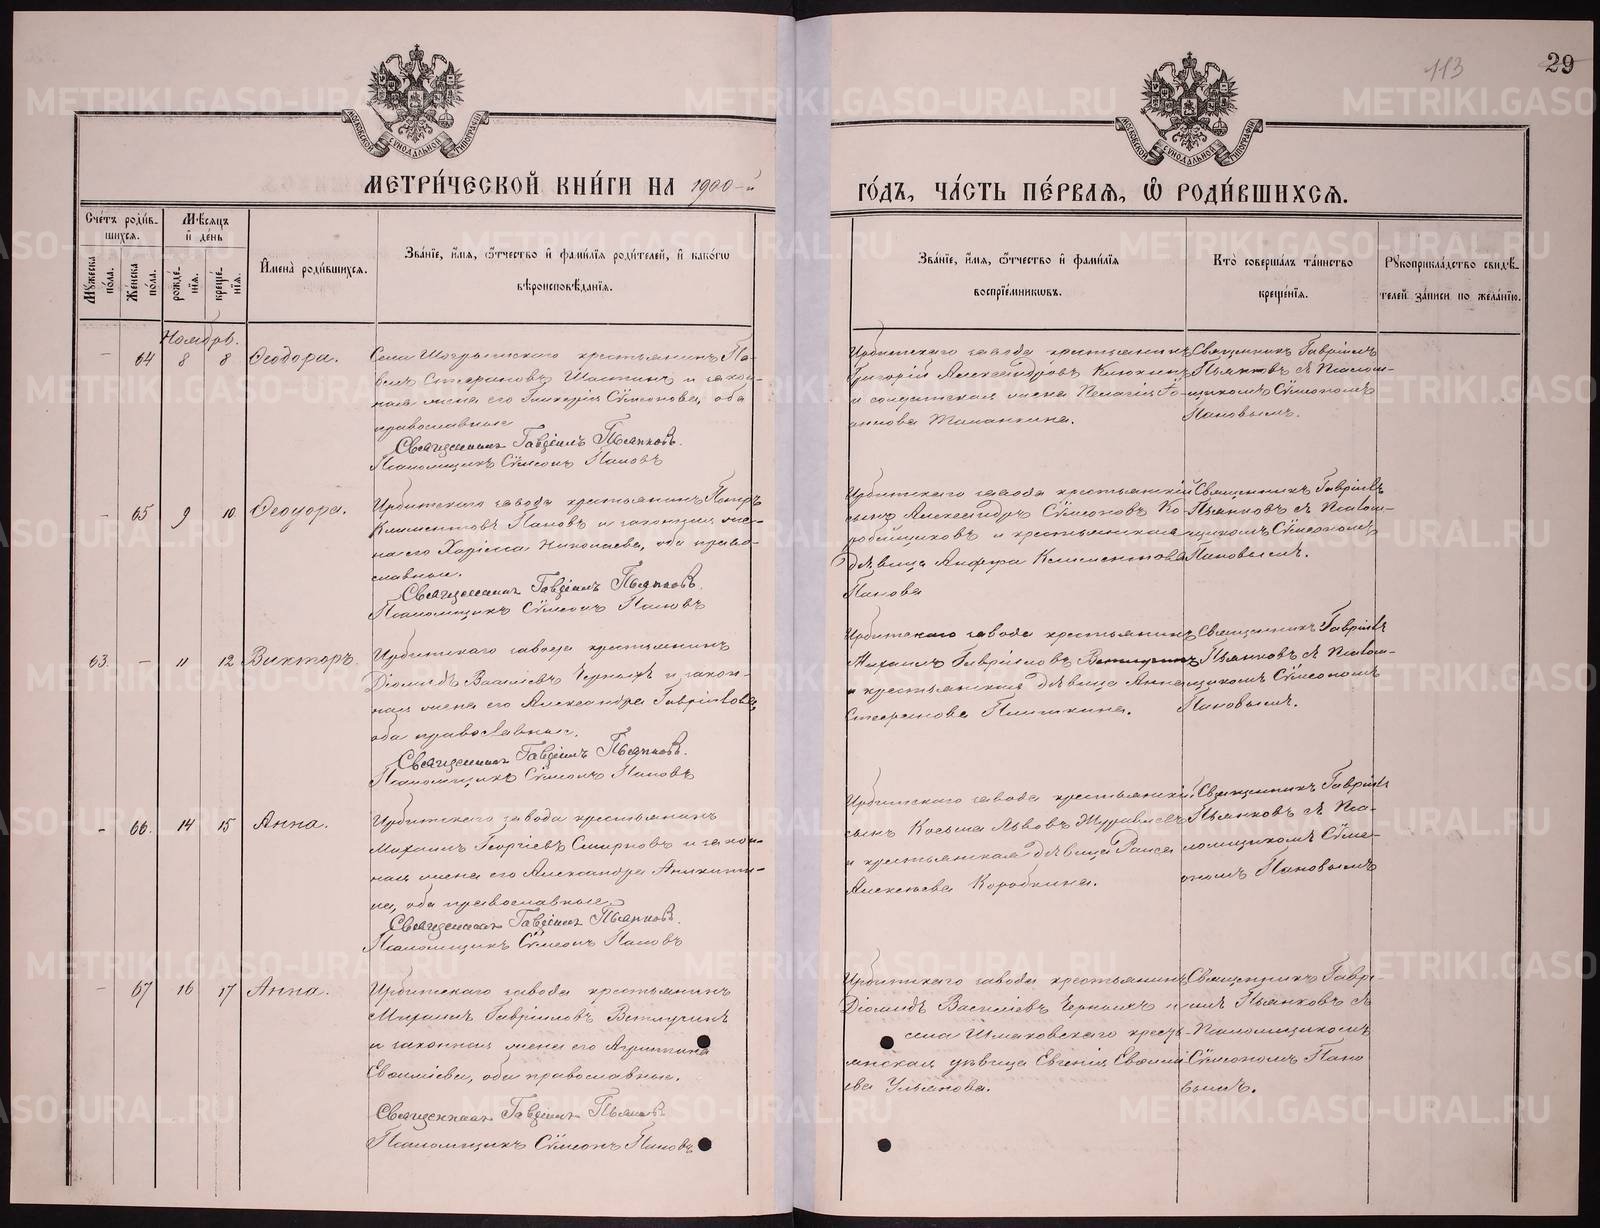 113
29
МОСКОВСКОЙ СѴНОДАЛЬНОЙ ТИПОГРАФІИ
МОСКОВСКОЙ СѴНОДАЛЬНОЙ ТИПОГРАФІИ
МЕТРИ́ЧЕСКОЙ КНИ́ГИ НА 1900-й
ГО́ДЪ, ЧА́СТЬ ПЕ́РВАѦ, Ѡ҆ РОДИ́ВШИХСѦ.
Сче́тъ роди́в-
шихсѧ.
Мꙋ́жеска по́ла.
Же́нска по́ла.
Мѣ́сѧцъ
и҆ де́нь
рожде́-
нїѧ.
креще́-
нїѧ.
И҆мена̀ роди́вшихсѧ.
Зва́нїе, и҆́мѧ, ѻ҆́тчество и҆ фами́лїѧ роди́телей, и҆ како́гѡ
вѣроисповѣ́данїѧ.
Зва́нїе, и҆́мѧ, ѻ҆́тчество и҆ фами́лїѧ
воспрїе́мникѡвъ.
Кто̀ соверша́лъ та́инство
креще́нїѧ.
Рꙋкоприкла́дство свидѣ́-
телей за́писи по жела́нїю.
Ноябрь.
–
64
8
8
Ѳеодора.
Села Шогришскаго крестьянинъ Па-
велъ Стефановъ Шастинъ и закон-
ная жена его Гликерія Сѵмеонова, оба
православные
Священникъ Гавріилъ Пьянковъ.
Псаломщикъ Сѵмеонъ Пановъ
Ирбитскаго завода крестьянинъ
Григорій Александровъ Клюкинъ
и солдатская жена Пелагія
Священникъ Гавріилъ
Пьянковъ съ Псалом-
щикомъ Сѵмеономъ
Пановымъ.
–
65
9
10
Ѳеодора.
Ирбитскаго завода крестьянинъ Петръ
Климентовъ Пановъ и законная же-
на его Харіесса Николаева, оба право-
славные.
Священникъ Гавріилъ Пьянковъ.
Псаломщикъ Сѵмеонъ Пановъ
Ирбитскаго завода крестьянскій
сынъ Александръ Сѵмеоновъ Ко-
робейщиковъ и крестьянская
дѣвица Анфиса Климентова
Панова
Священникъ Гавріилъ
Пьянковъ съ Псалом-
щикомъ Сѵмеономъ
Пановымъ.
63.
–
11
12
Викторъ.
Ирбитскаго завода крестьянинъ
Діомидъ Василіевъ Черныхъ и закон-
ная жена его Александра Гавріилова,
оба православные.
Священникъ Гавріилъ Пьянковъ.
Псаломщикъ Сѵмеонъ Пановъ
Ирбитскаго завода крестьянинъ
Михаилъ Гавріиловъ Ветлугинъ
и крестьянская дѣвица Анна
Стефанова Пишкина.
Священникъ Гавріилъ
Пьянковъ съ Псалом-
щикомъ Сѵмеономъ
Пановымъ.
–
66.
14
15
Анна.
Ирбитскаго завода крестьянинъ
Михаилъ Георгіевъ Смирновъ и закон-
ная жена его Александра Аникити-
на, оба православные.
Священникъ Гавріилъ Пьянковъ.
Псаломщикъ Сѵмеонъ Пановъ
Ирбитскаго завода крестьянскій
сынъ Косьма Львовъ Журавлевъ
и крестьянская дѣвица Раиса
Алексѣева Коробкина.
Священникъ Гавріилъ
Пьянковъ съ Пса-
ломщикомъ Сѵме-
ономъ Пановымъ
–
67
16
17
Анна.
Ирбитскаго завода крестьянинъ
Михаилъ Гавріиловъ Ветлугинъ
и законная жена его Агриппина
Евсиміева, оба православные.
Священникъ Гавріилъ Пьянковъ
Псаломщикъ Сѵмеонъ Пановъ
Ирбитскаго завода крестьянинъ
Діомидъ Василіевъ Черныхъ и
села Шмаковскаго кресть-
янская дѣвица Евгенія
ева Ульянова.
Священникъ Гаврі-
илъ Пьянковъ съ
Псаломщикомъ
Сѵмеономъ Пано
вымъ.
METRIKI.GASO-URAL.RU